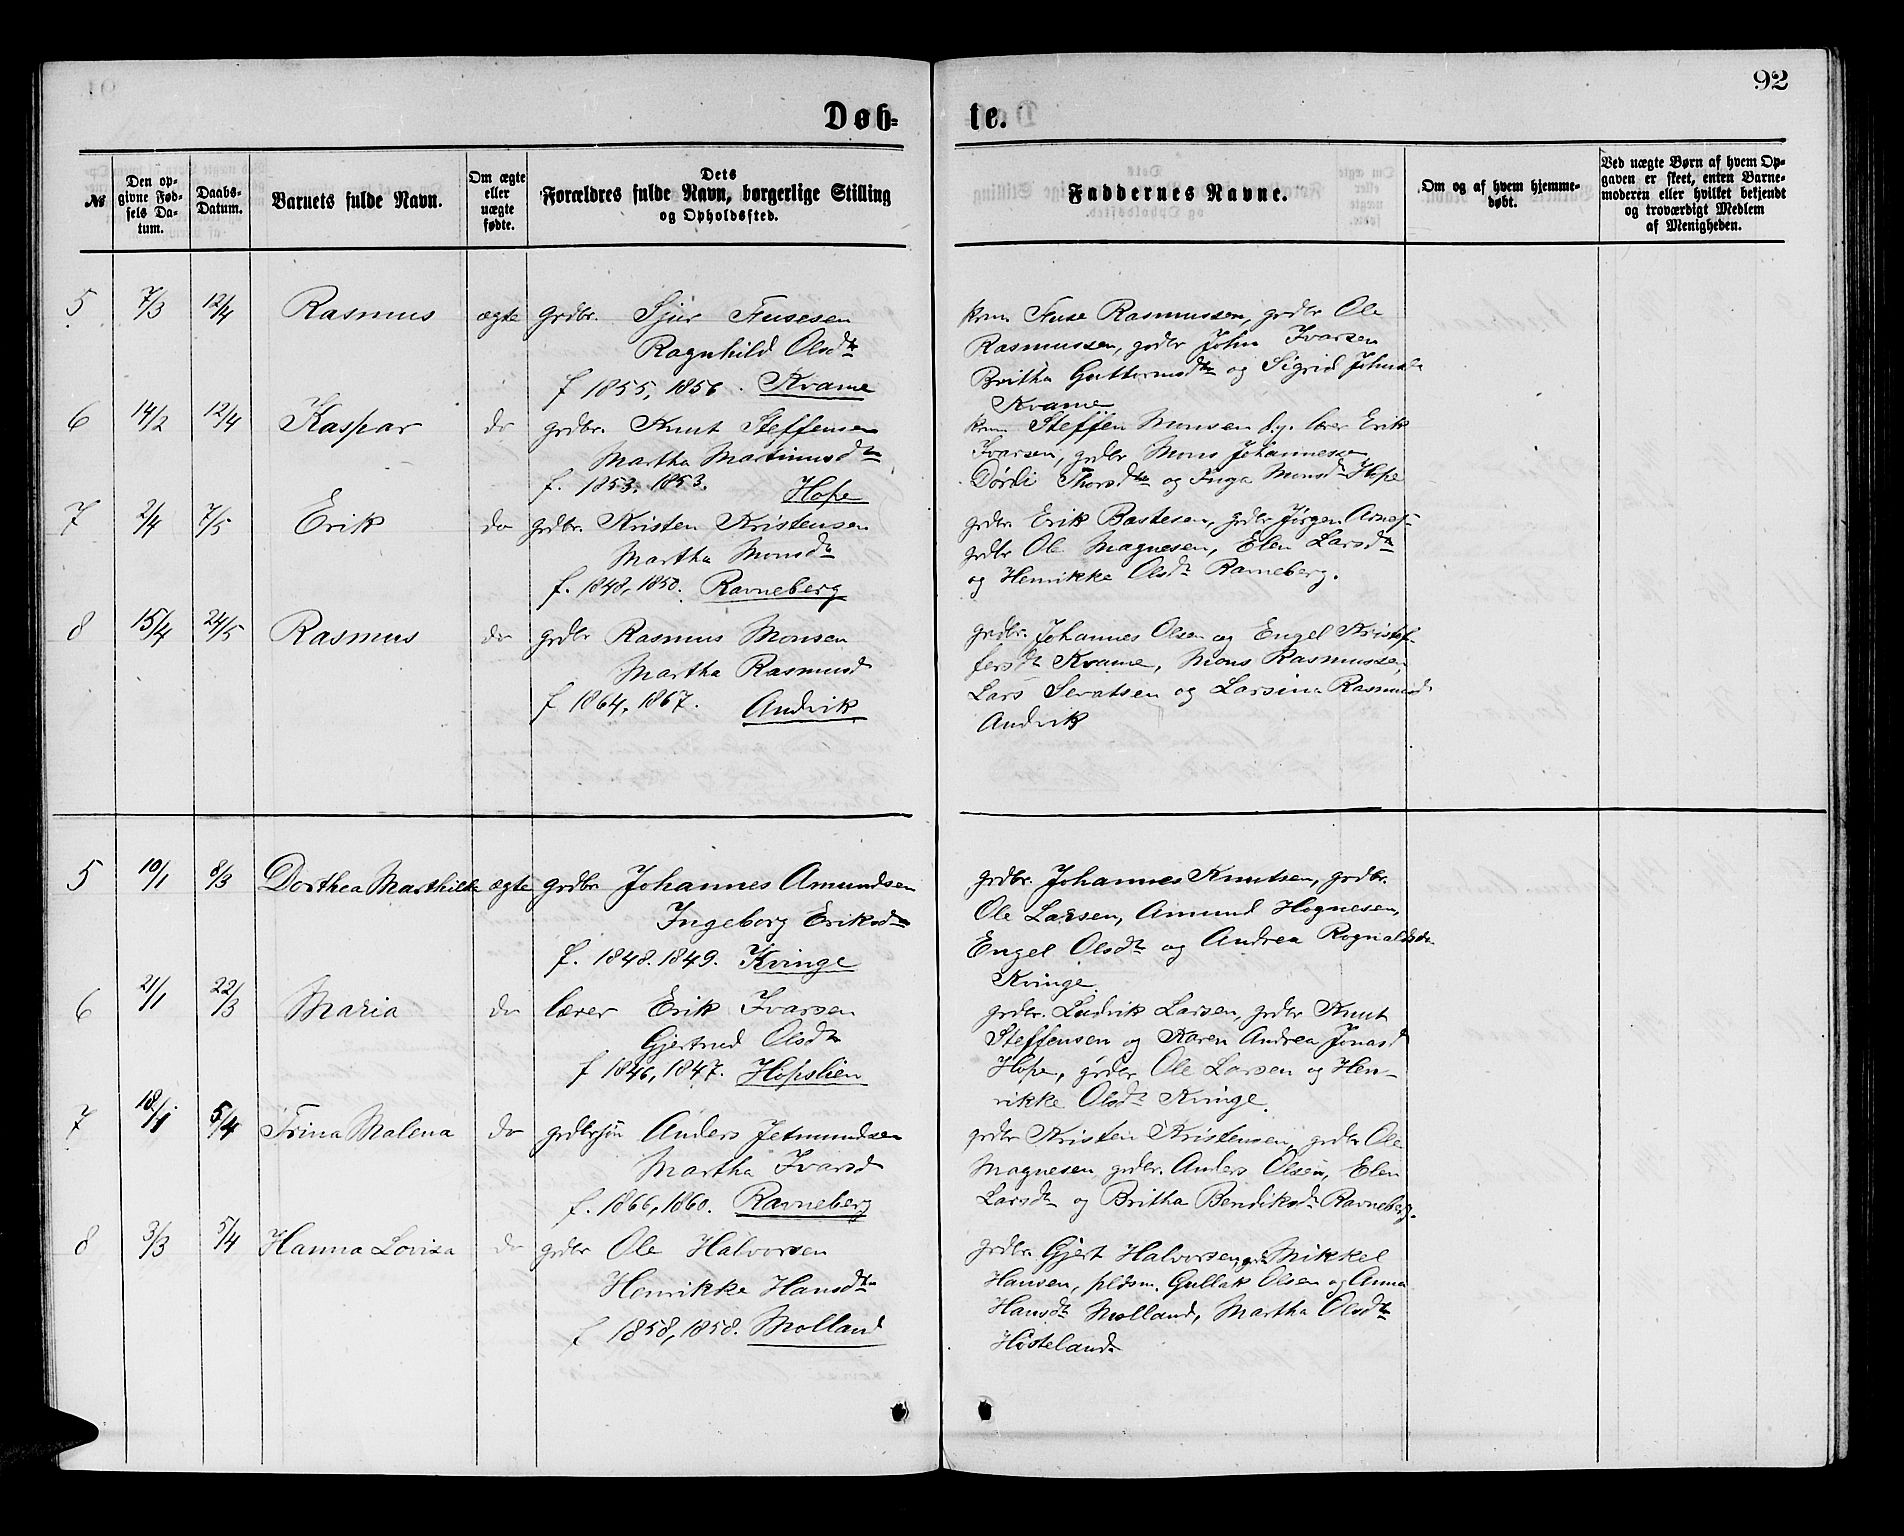 92
Døb-
te.
№
Den op-
givne Fød-
sels Da-
tum.
Daabs-
Datum.
Barnets fulde Navn.
Om ægte
eller
uægte
fødte.
Dets
Forældres fulde Navn, borgerlige Stilling
og Opholdssted.
Faddernes Navne.
Om og af hvem hjemme-
døbt.
Ved uægte Børn af hvem Op-
gaven er skeet, enten Barne-
moderen eller hvilket bekjendt
og troværdigt Medlem
af Menigheden.
5 7/3 12/4 Rasmus ægte grdbr. Sjur Fusesen
Ragnhild Olsdtr
f 1855, 1856. Kvame
krm Fuse Rasmussen, grdbr Ole
Rasmussen, grdbr John Ivarsen
Britha Guttormsdtr og Sigrid Johnsdr
Kvame
6 14/2 12/4 Kaspar do grdbr. Knut Steffensen
Martha Martinusdtr
f. 1853, 1853. Hope
krm Steffen Monsen lærer Erik
Ivarsen, grdbr Mons Johannessen
Dørdi Thorsdtr og Inga Monsdr Hope
7 2/4 7/5 Erik do grdbr. Kristen Kristensen
Martha Monsdtr
f. 1848, 1850. Ravneberg
grdbr. Erik Bastesen, grdbr Jørgen Arnes.
grdbr Ole Magnesen, Elen Larsdtr
og Henrikke Olsdtr Ravneberg.
8 15/4 24/5 Rasmus do grdbr Rasmus Monsen
Martha Rasmusd
f 1864, 1867. Andvik
grdbr. Johannes Olsen og Engel Kristof-
fersdtr Kvame, Mons Rasmussen,
Lars Sevatsen og Larsina Rasmusd
Andvik
5 10/1 8/3 Dorthea Marthilde ægte grdbr Johannes Amundsen
Ingeborg Eriksdtr
f. 1848. 1849. Kvinge
grdbr. Johannes Knutsen, grdbr.
Ole Larsen, Amund Hognesen,
Engel Olsdtr og Andrea Rognaldsdr
Kvinge.
6 21/1 22/3 Maria do lærer Erik Ivarsen
Gjertrud Olsdtr
f 1846, 1847. Hopslien
grdbr. Ludvik Larsen, grdbr Knut
Steffensen og Karen Andrea Jonasd
Hope, grdbr Ole Larsen og Hen-
rikke Olsdtr Kvinge.
7 18/1 5/4 Trina Malena do grdbrsøn Anders Jetmundsen
Martha Ivarsd
f. 1866, 1860. Ravneberg
grdbr Kristen Kristensen, grdbr Ole
Magnesen, grdbr. Anders Olsen, Elen
Larsdtr og Britha Bendiksdr Ravneberg.
8 3/3 5/4 Hanna Lovisa do grdbr Ole Halvorsen
Henrikke Hansdtr
f 1858, 1858. Molland
grdbr. Gjert Halvorsen, grdbr Mikkel
Hansen, pldsm. Gullak Olsen og Anna
Hansdtr Molland, Martha Olsdtr
Høsteland